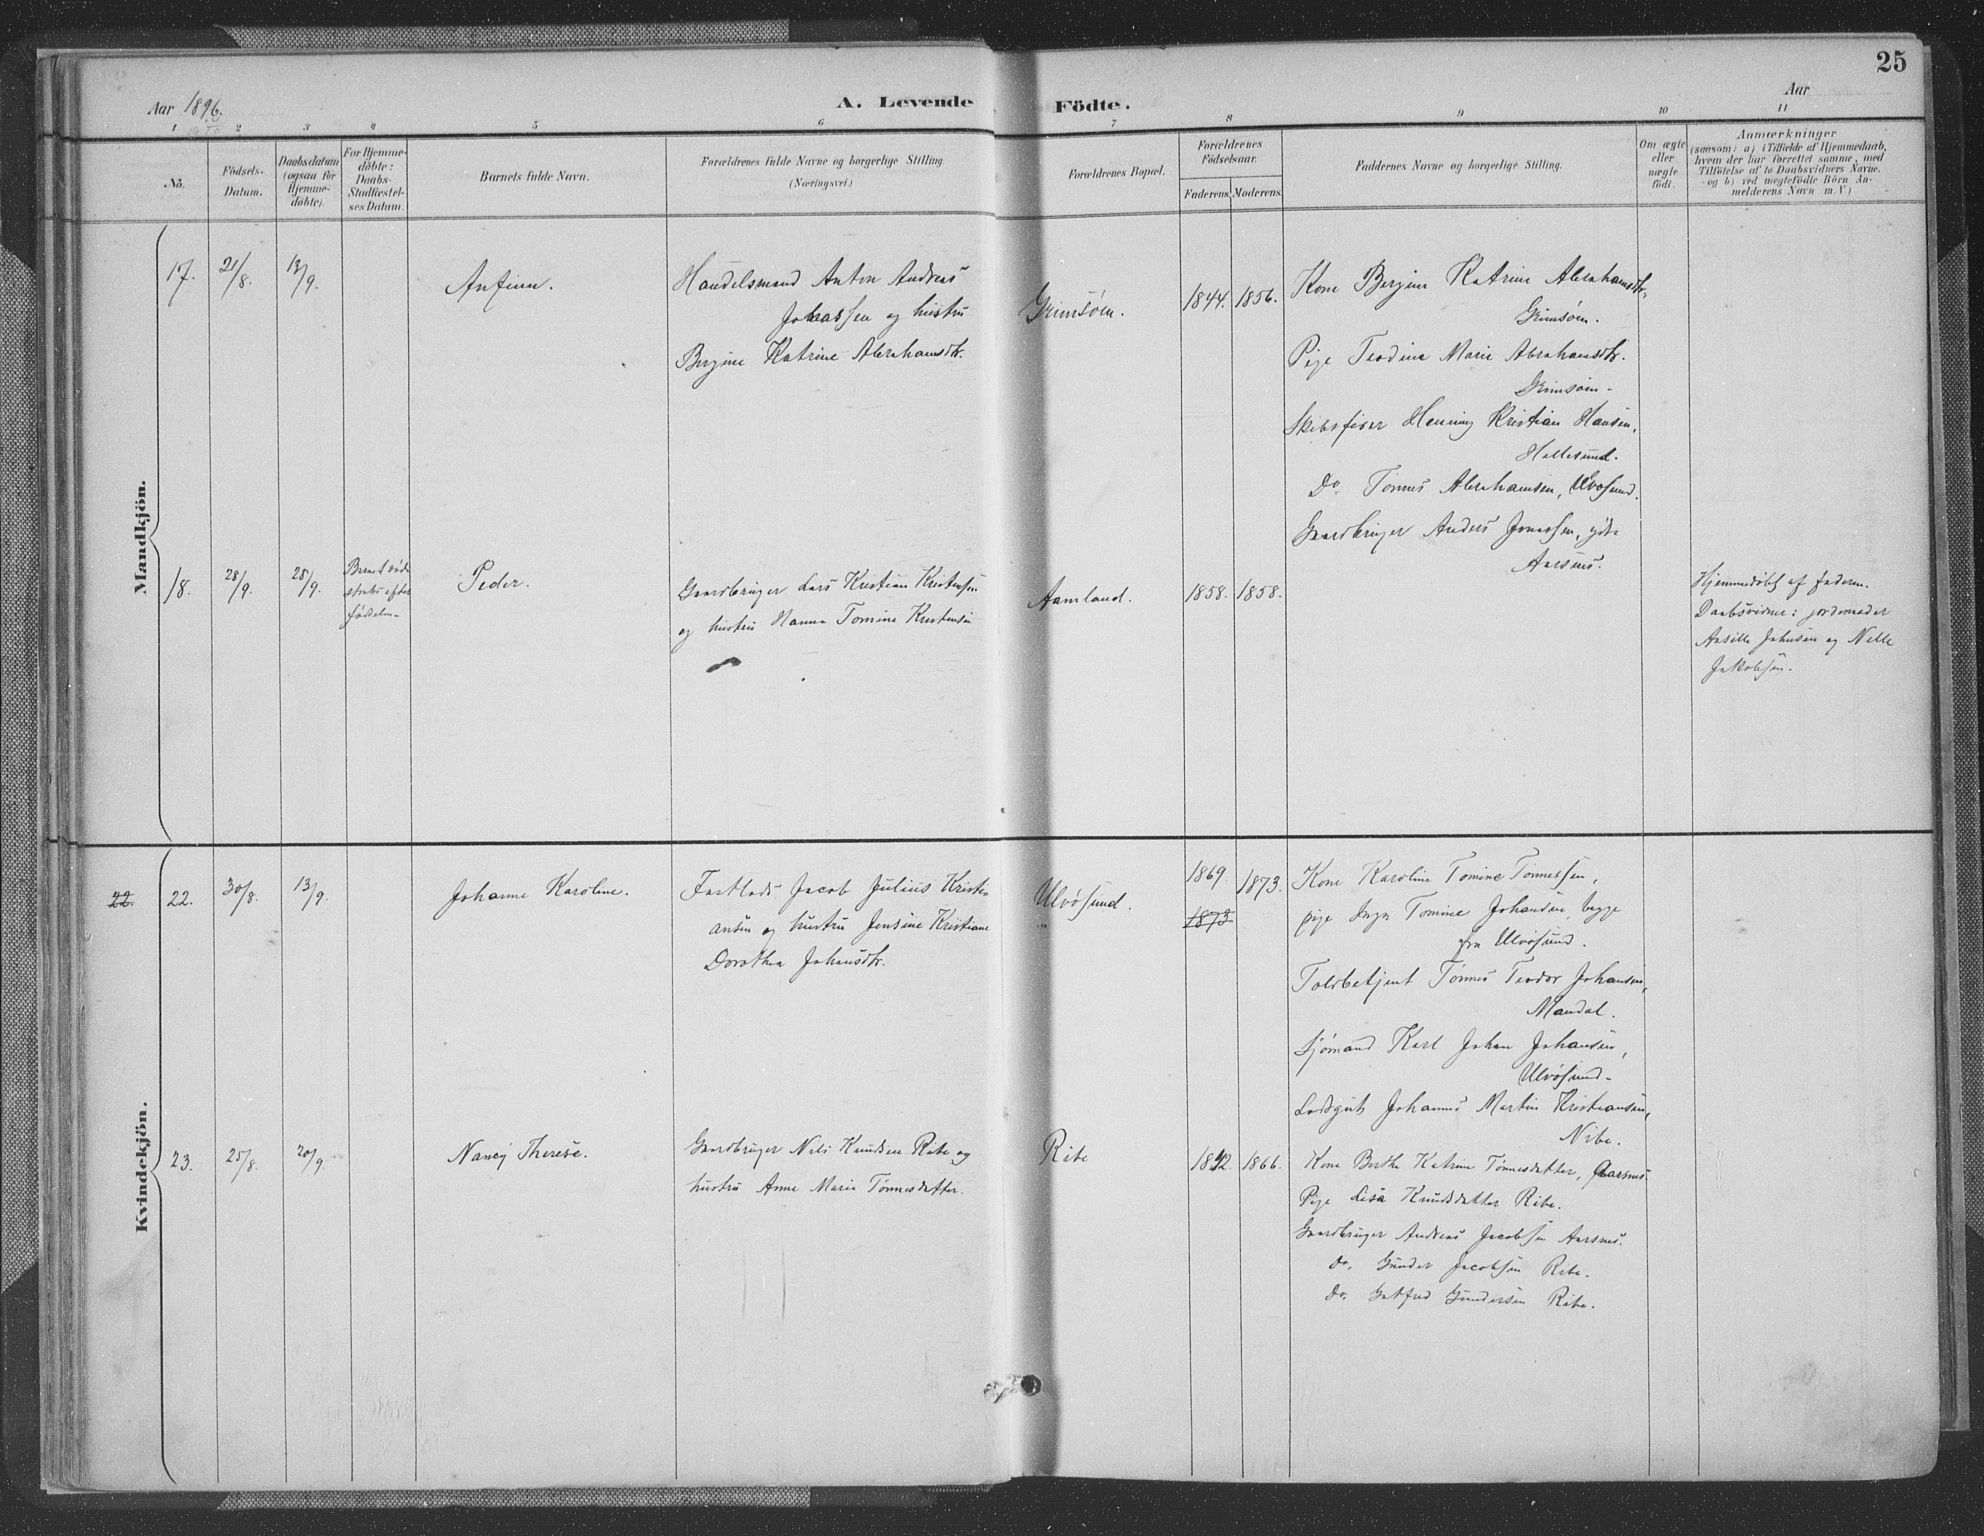 25
Aar 1896.
A. Levende Födte.
Aar
1 2 3 4 5 6 7 8 9 10 11
No.
Födsels-
Datum.
Daabsdatum
(ogsaa för
Hjemme-
döbte).
For Hjemme-
döbte:
Daabs-
Stadfæstel-
ses Datum.
Barnets fulde Navn.
Forældrenes fulde Navne og borgerlige Stilling.
(Næringsvei.)
Forældrenes Bopæl.
Forældrenes
Födselsaar.
Faderens. Moderens.
Faddernes Navne og borgerlige Stilling.
Om ægte
eller
uægte
födt.
Anmærkninger
(saasom: a) i Tilfælde af Hjemmedaab,
hvem der har forrettet samme, med
Tilföielse af to Daabsvidners Navne.
og b) ved uægtefödte Börn An-
melderens Navn m.V.)
Mandkjön.
17. 21/8. 13/9.
Anfinn.
Handelsmand Anton Andreas
Johassen og hustru
Bergine Katrine Abrahamsdtr.
Grimsöen.
1844. 1856.
Kone Bergine Katrine Abrahamsdtr.
Grimsöen.
Pige Teodine Marie Abrahamsdtr.
Grimsöen.
Skibsförer Henning Kristian Hansen,
Hellesund.
Do. Tönnes Abrahamsen, Ulvösund.
Gaardbruger Anders Jonassen, ydre
Aarsnes.
18. 28/9. 28/9.
Barnet döde
straks efter
födselen.
Peder.
Gaardbruger Lars Kristian Kristensen
og hustru Hanna Tomine Kristensen
Aamland.
1858. 1858.
Hjemmedöbt af faderen.
Daabsvidner: jordemoder
Aasille Johnsen og Nelle
Jakobsen.
Kvindekjön.
22. 22. 30/8. 13/9.
Johanne Karoline.
Fastlods Jacob Julius Kristi-
ansen og hustru Jensine Kristiane
Dorothea Johansdtr.
Ulvösund.
1869. 1873.
1873
Kone Karoline Tomine Tönnessen,
pige Inga Tomine Johansen, begge
fra Ulvösund.
Toldbetjent Tönnes Teodor Johansen,
Mandal.
Sjömand Karl Johan Johansen,
Ulvösund.
Lodsgut Johannes Martin Kristiansen,
Nibe.
23. 25/8. 20/9.
Nancy Therese.
Gaardbruger Nils Knudsen Ribe og
hustru Anne Marie Tönnesdatter.
Ribe
1842. 1866.
Kone Berthe Katrine Tönnesdatter, Aarsnes.
Pige Lisa Knudsdatter Ribe.
Gaardbruger Andreas Jacobsen Aarsnes.
Do. Gunder Jacobsen Ribe.
Do. Gotfred Gundersen Ribe.